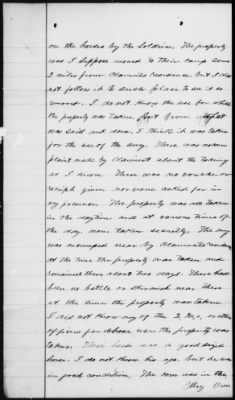 on the horses by the Soldiers. The property
was I suppose moved to their camp some
2 miles from Claimants residence but I did
not follow it to such place to see it so
moved. I do not know the use for which
the property was taken but from
was said and seen, I think it was taken
for the use of the army. There was no com
plaint made by Claimant about the taking
as I know. There was no voucher or
receipt given, nor none asked for in
my presence. The property was all taken
in the daytime and at various times of
the day, none taken secretly. The army
was encamped near by Claimants residence
at the time the property was taken and
remained there about two days. There had
been no battle or skirmish near there
at the time the property was taken
I did not know any of the
officers for whose use the property was
taken. There horse was a good sized
horse. I do not know his age. but he was
in good condition. The corn was in the